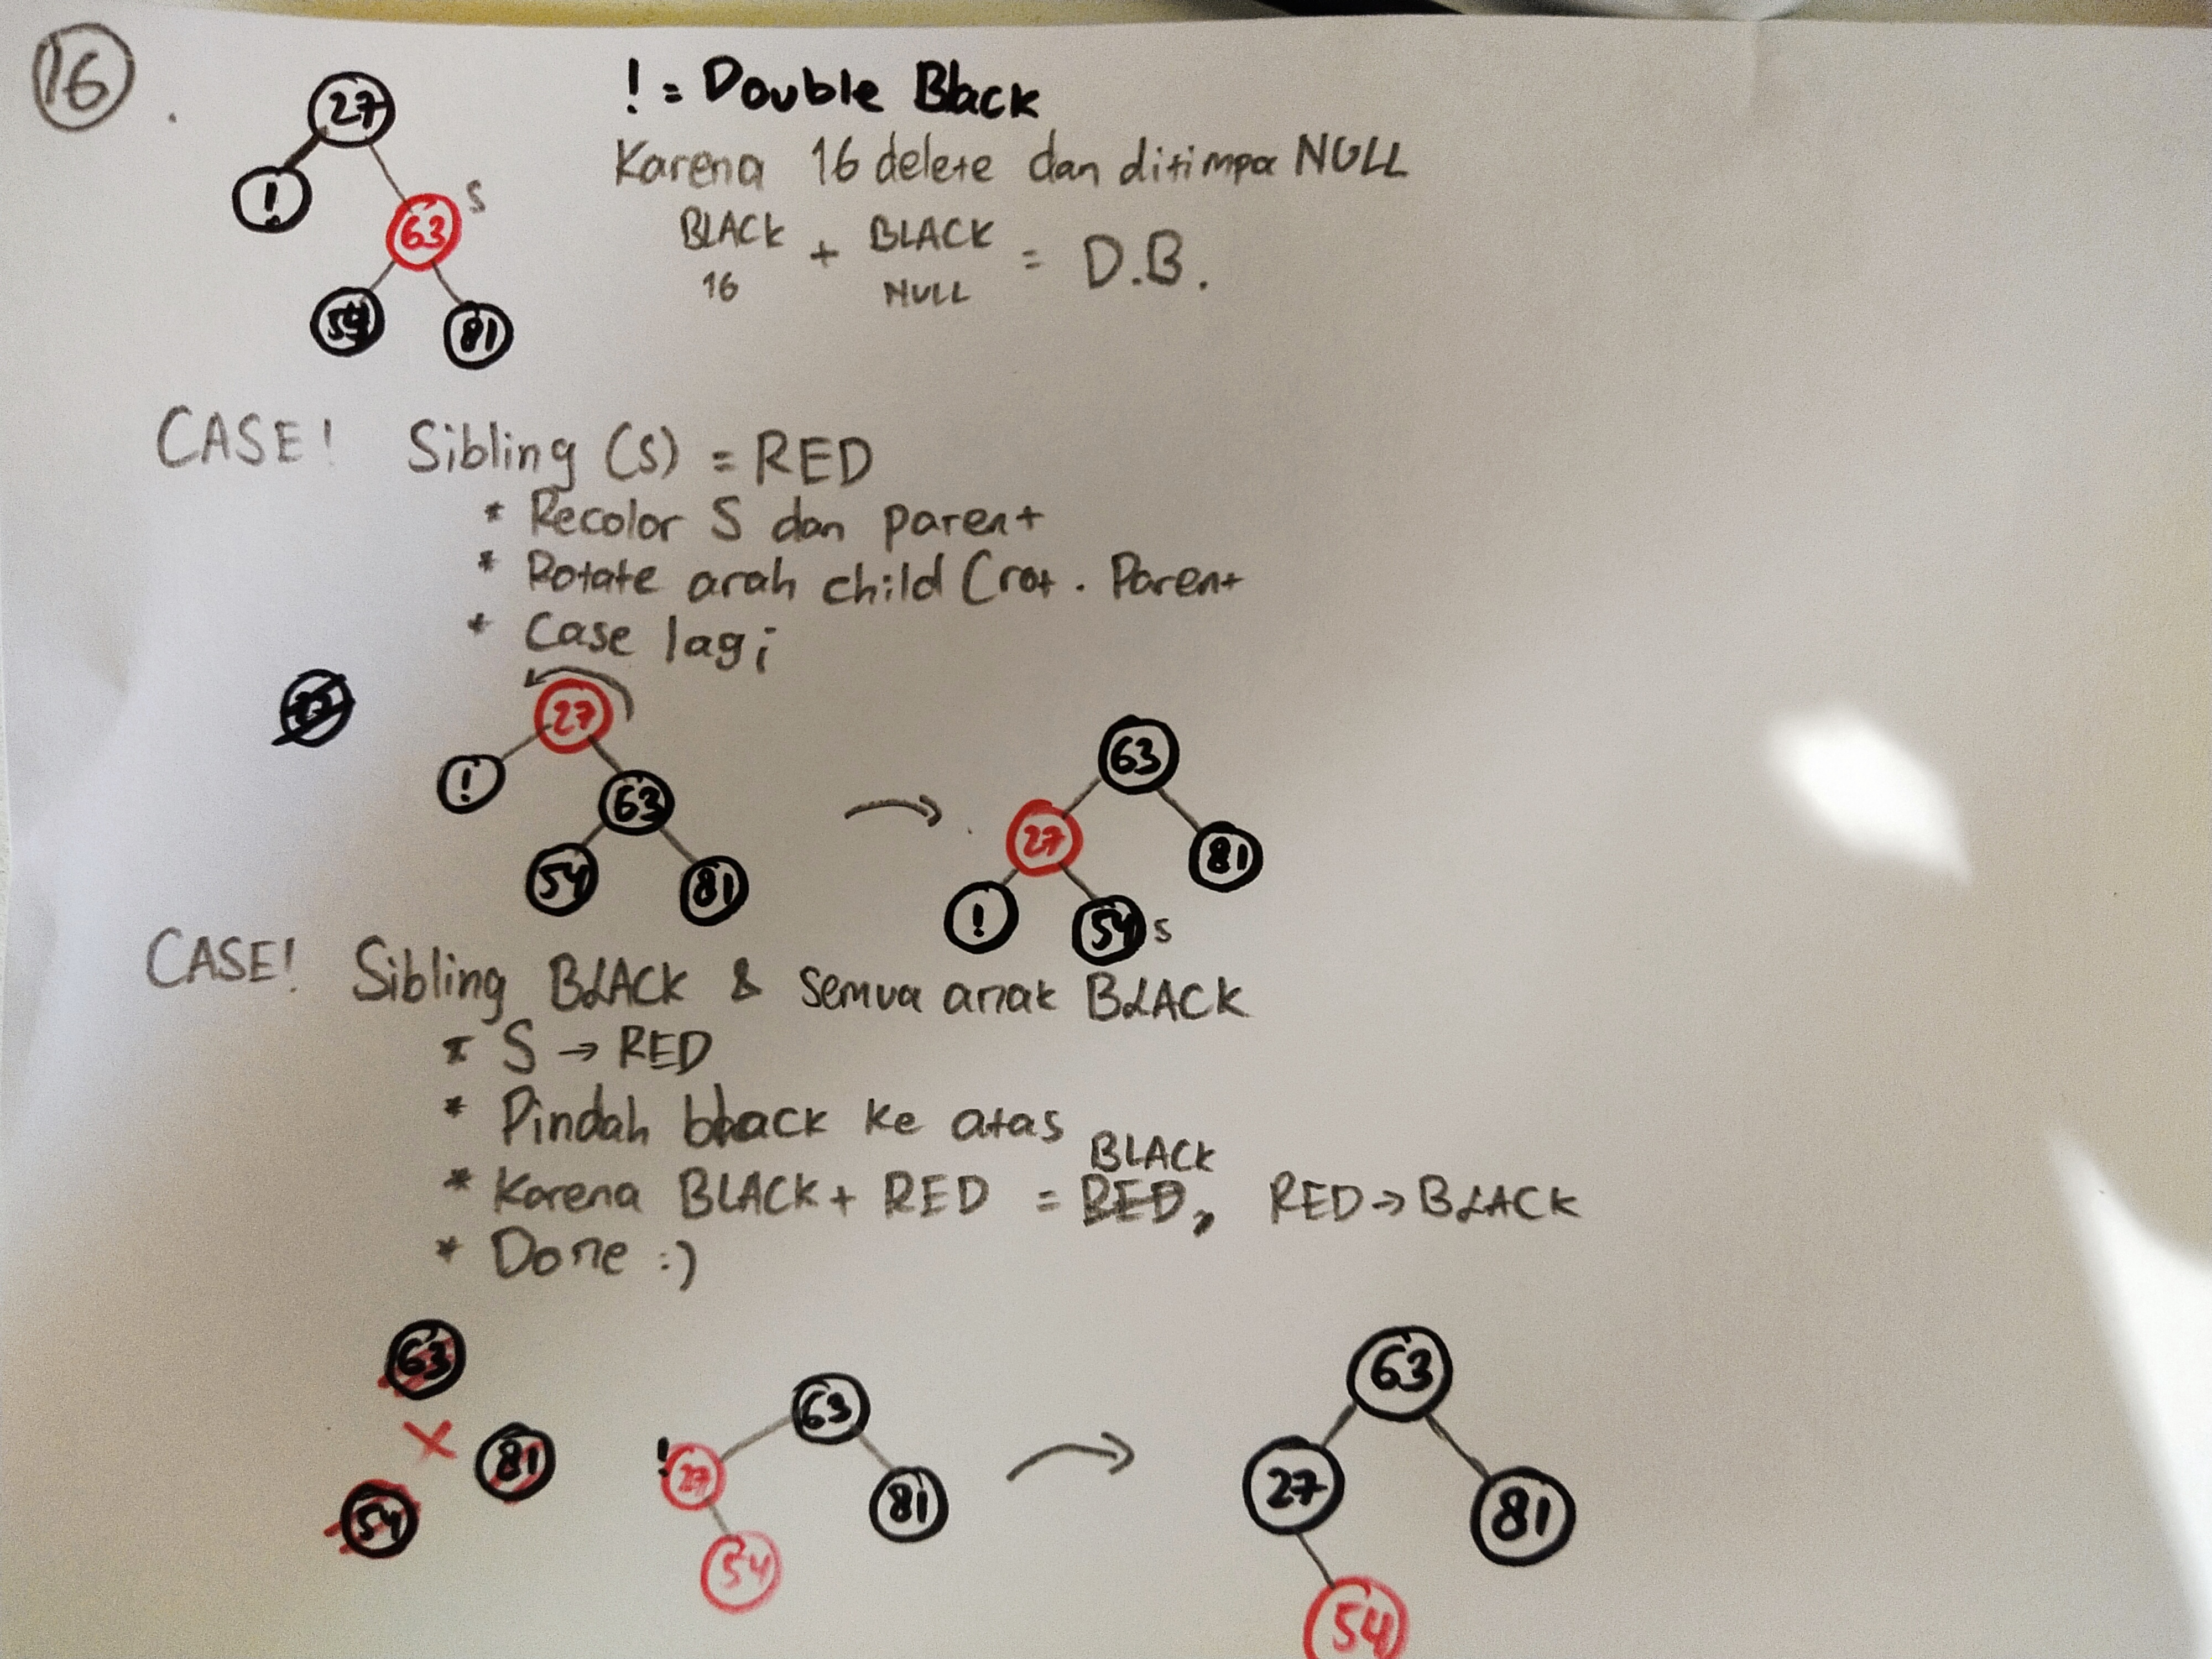 16
! = Double Black
27
!
63 S
54 81
Karena 16 delete dan ditimpa NULL
BLACK + BLACK = D.B.
16 NULL
CASE! Sibling (s) = RED
* Recolor S dan parent
* Rotate arah child (rot. Parent
* Case lagi
27
! 63
54 81
63
27 81
! 54 S
CASE! Sibling BLACK & Semua anak BLACK
* S → RED
* Pindah black ke atas
BLACK
* Karena BLACK + RED = RED, RED → BLACK
* Done :)
63
54 X 81
63
! 27 81
54
63
27 81
54